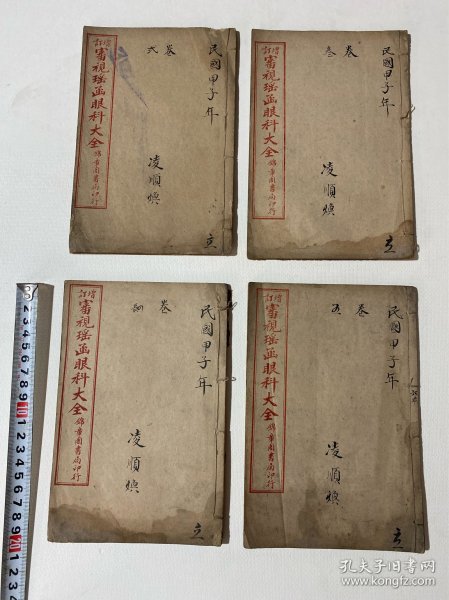 民國甲子年
卷弍
凌順煥
立
增訂審視瑶函眼科大全
錦章圖書局印行
民國甲子年
卷叁
凌順煥
立
增訂審視瑶函眼科大全
錦章圖書局印行
民國甲子年
卷四
凌順煥
立
增訂審視瑶函眼科大全
錦章圖書局印行
民國甲子年
卷五
凌順煥
立
增訂審視瑶函眼科大全
錦章圖書局印行
10
20
孔夫子旧书网